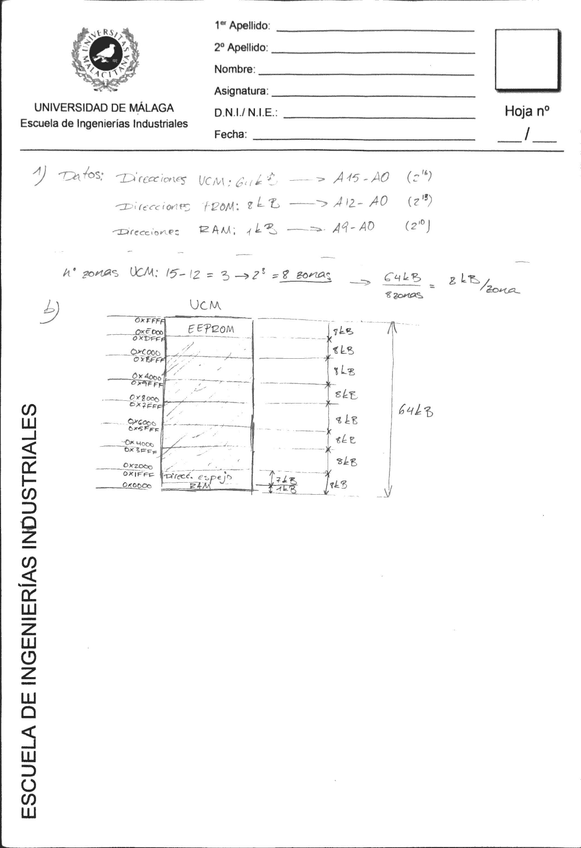 UNIVERSITAS MALACITANA
1er Apellido:
2º Apellido:
Nombre:
Asignatura:
D.N.I./ N.I.E.:
Fecha:
UNIVERSIDAD DE MÁLAGA
Escuela de Ingenierías Industriales
Hoja nº
/
1) Datos: Direcciones UCM: 64kB → A15-A0 (2^16)
Direcciones EEPROM: 8kB → A12-A0 (2^13)
Direcciones RAM: 1kB → A9-A0 (2^10)
nº zonas UCM: 15-12 = 3 → 2^3 = 8 zonas → 64kB / 8 zonas = 8kB/zona
b) UCM
0xFFFF EEPROM 8kB
0xE000
0xDFFF 8kB
0xC000
0xBFFF 8kB
0xA000
0x9FFF 8kB
0x8000
0x7FFF 8kB 64kB
0x6000
0x5FFF 8kB
0x4000
0x3FFF 8kB
0x2000
0x1FFF Direcc. espejo 7kB 8kB
0x0000 RAM 1kB
ESCUELA DE INGENIERÍAS INDUSTRIALES